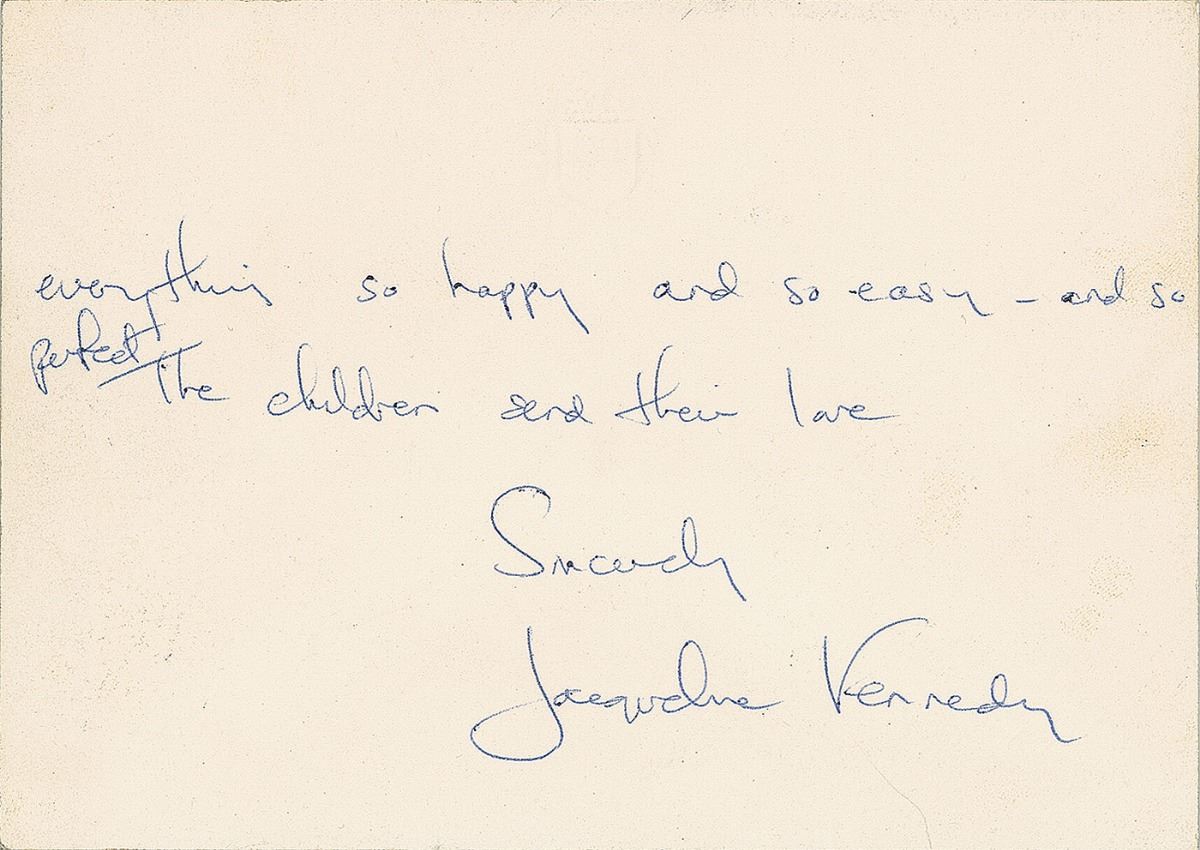 everything so happy and so easy – and so
perfect
The children send their love
Sincerely
Jacqueline Kennedy